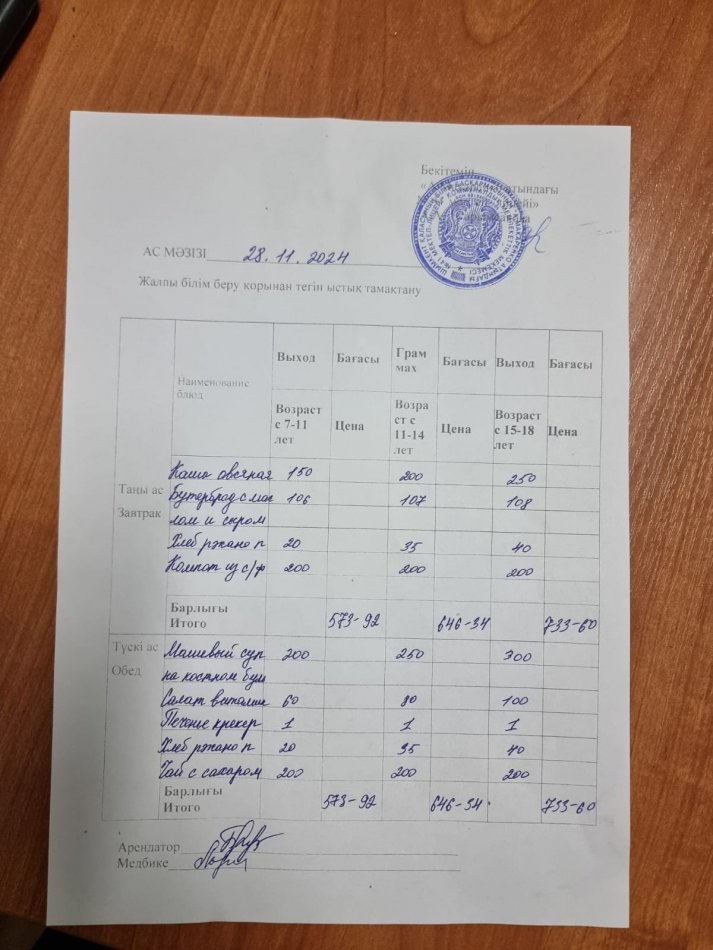 Бекітемін
АС МӘЗІЗІ 28.11.2024
Жалпы білім беру қорынан тегін ыстық тамақтану
Наименование блюд
Выход Бағасы Грам мах Бағасы Выход Бағасы
Возраст с 7-11 лет Цена Возра ст с 11-14 лет Цена Возраст с 15-18 лет Цена
Таңы ас
Завтрак
Каша овсяная 150 200 250
Бутерброд с мас 106 107 108
лом и сыром
Хлеб ржано п 20 35 40
Компот из с/ф 200 200 200
Барлығы
Итого 573-92 646-34 733-60
Түскі ас
Обед
Машевый суп 200 250 300
на костном бул
Салат витамин 60 80 100
Печенье крекер 1 1 1
Хлеб ржано п 20 35 40
Чай с сахаром 200 200 200
Барлығы
Итого 573-92 646-34 733-60
Арендатор
Медбике